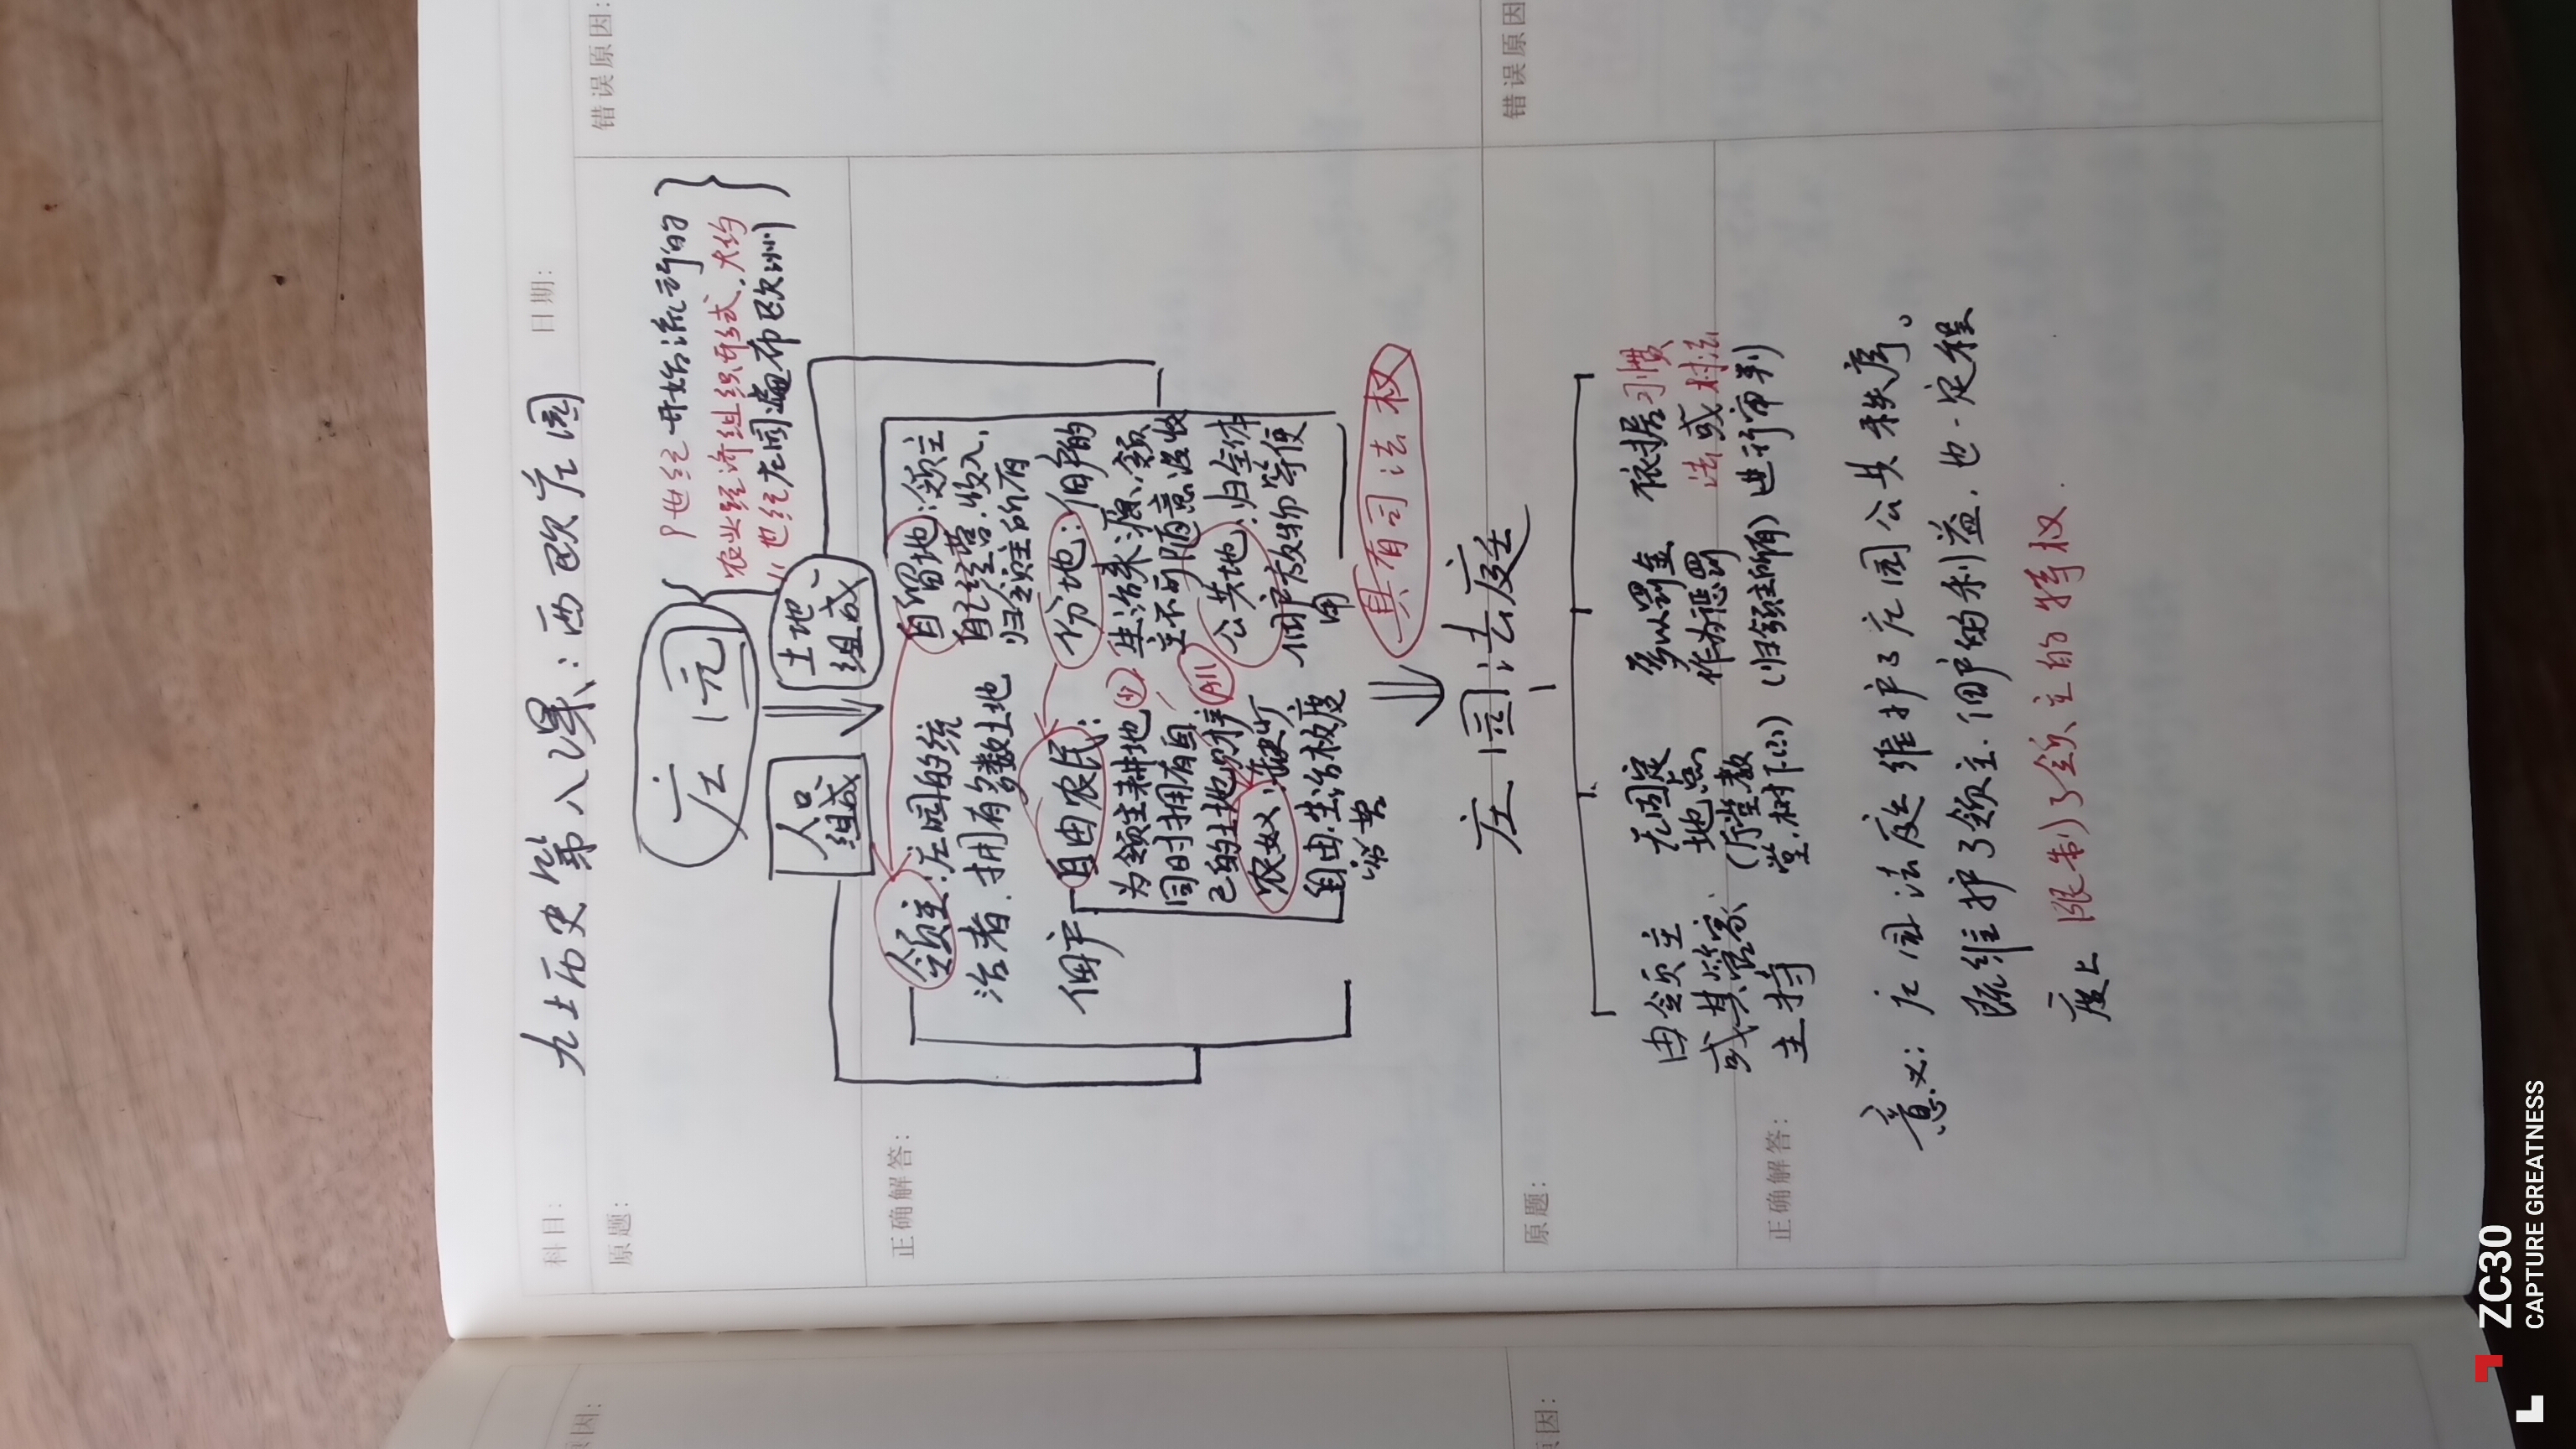 科目:
日期:
九上历史第八课:西欧庄园
原题:
错误原因:
庄园
9世纪开始流行的
农业经济组织形式,大约
11世纪庄园遍布欧洲
人口
组成
土地
组成
正确解答:
领主:庄园的统
治者.拥有多数土地
佃户
自由农民:
为领主耕地
同时拥有自
己的土地财产
农奴:缺少
自由.生活极度
穷苦
自留地:领主
自己经营.收入
归领主所有
份地:佃户的
生活来源,领
主不可随意没收
公共地:归全体
佃户放牧等使
用
具有司法权
庄园法庭
原题:
错误原因
由领主
或其管家
主持
无固定
地点
(厅堂.教
堂.树下)
多以罚金
作为惩罚
(归领主所有)
依据习惯
法或村法
进行审判
正确解答:
意义:庄园法庭维护了庄园公共秩序。
既维护了领主.佃户的利益,也一定程
度上限制了领主的特权.
因:
因:
ZC30
CAPTURE GREATNESS